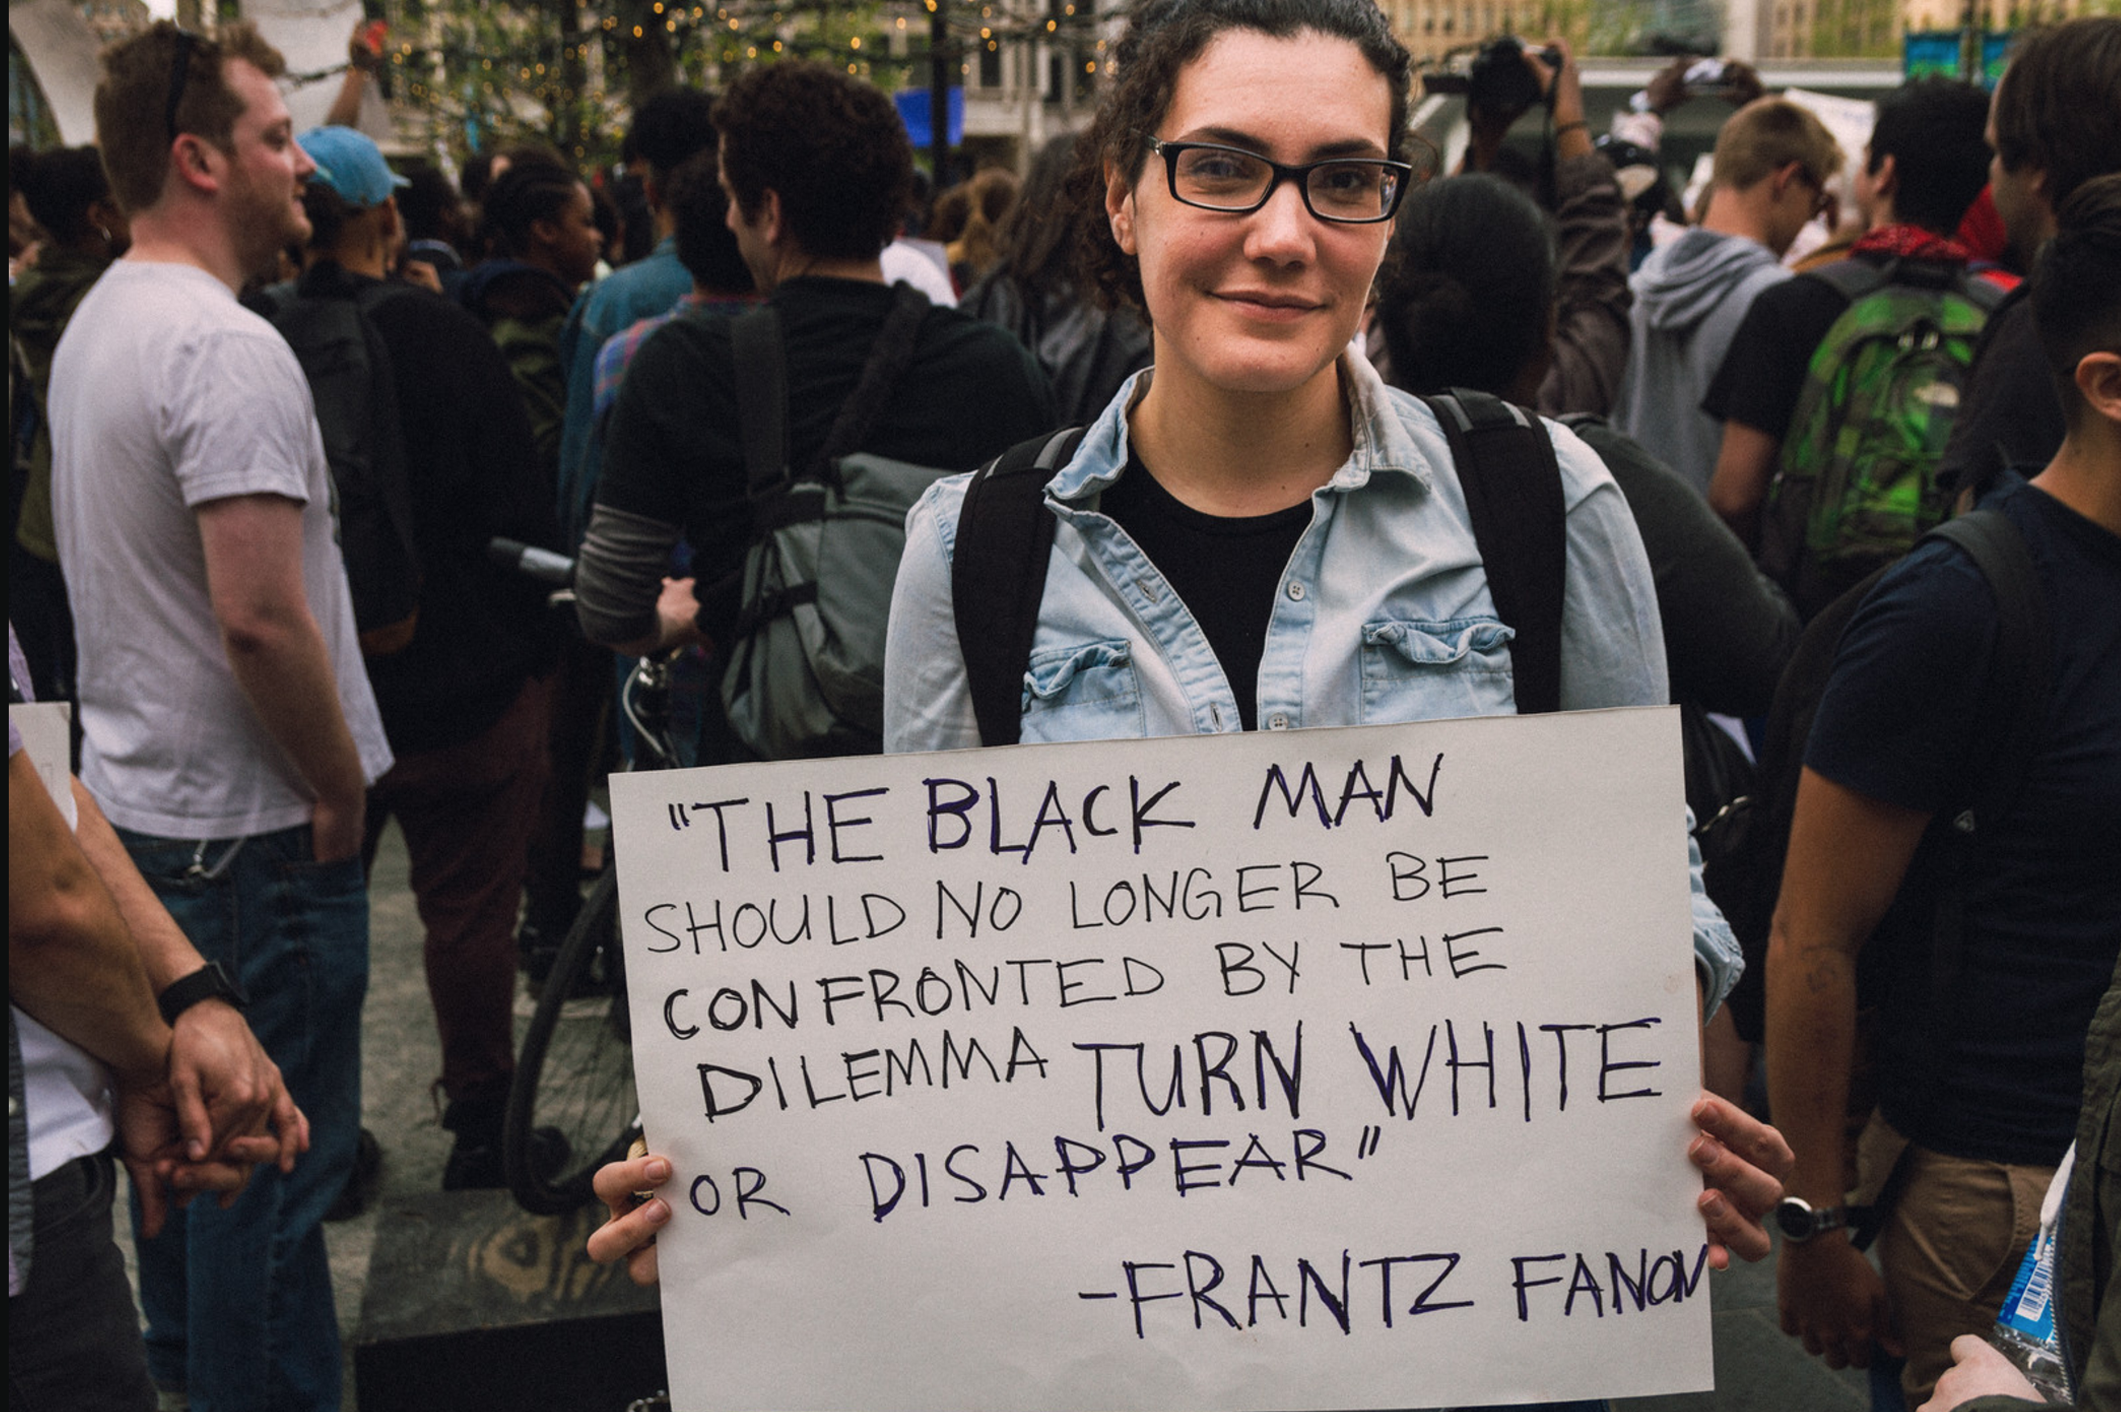 "THE BLACK MAN
SHOULD NO LONGER BE
CONFRONTED BY THE
DILEMMA TURN WHITE
OR DISAPPEAR"
-FRANTZ FANON